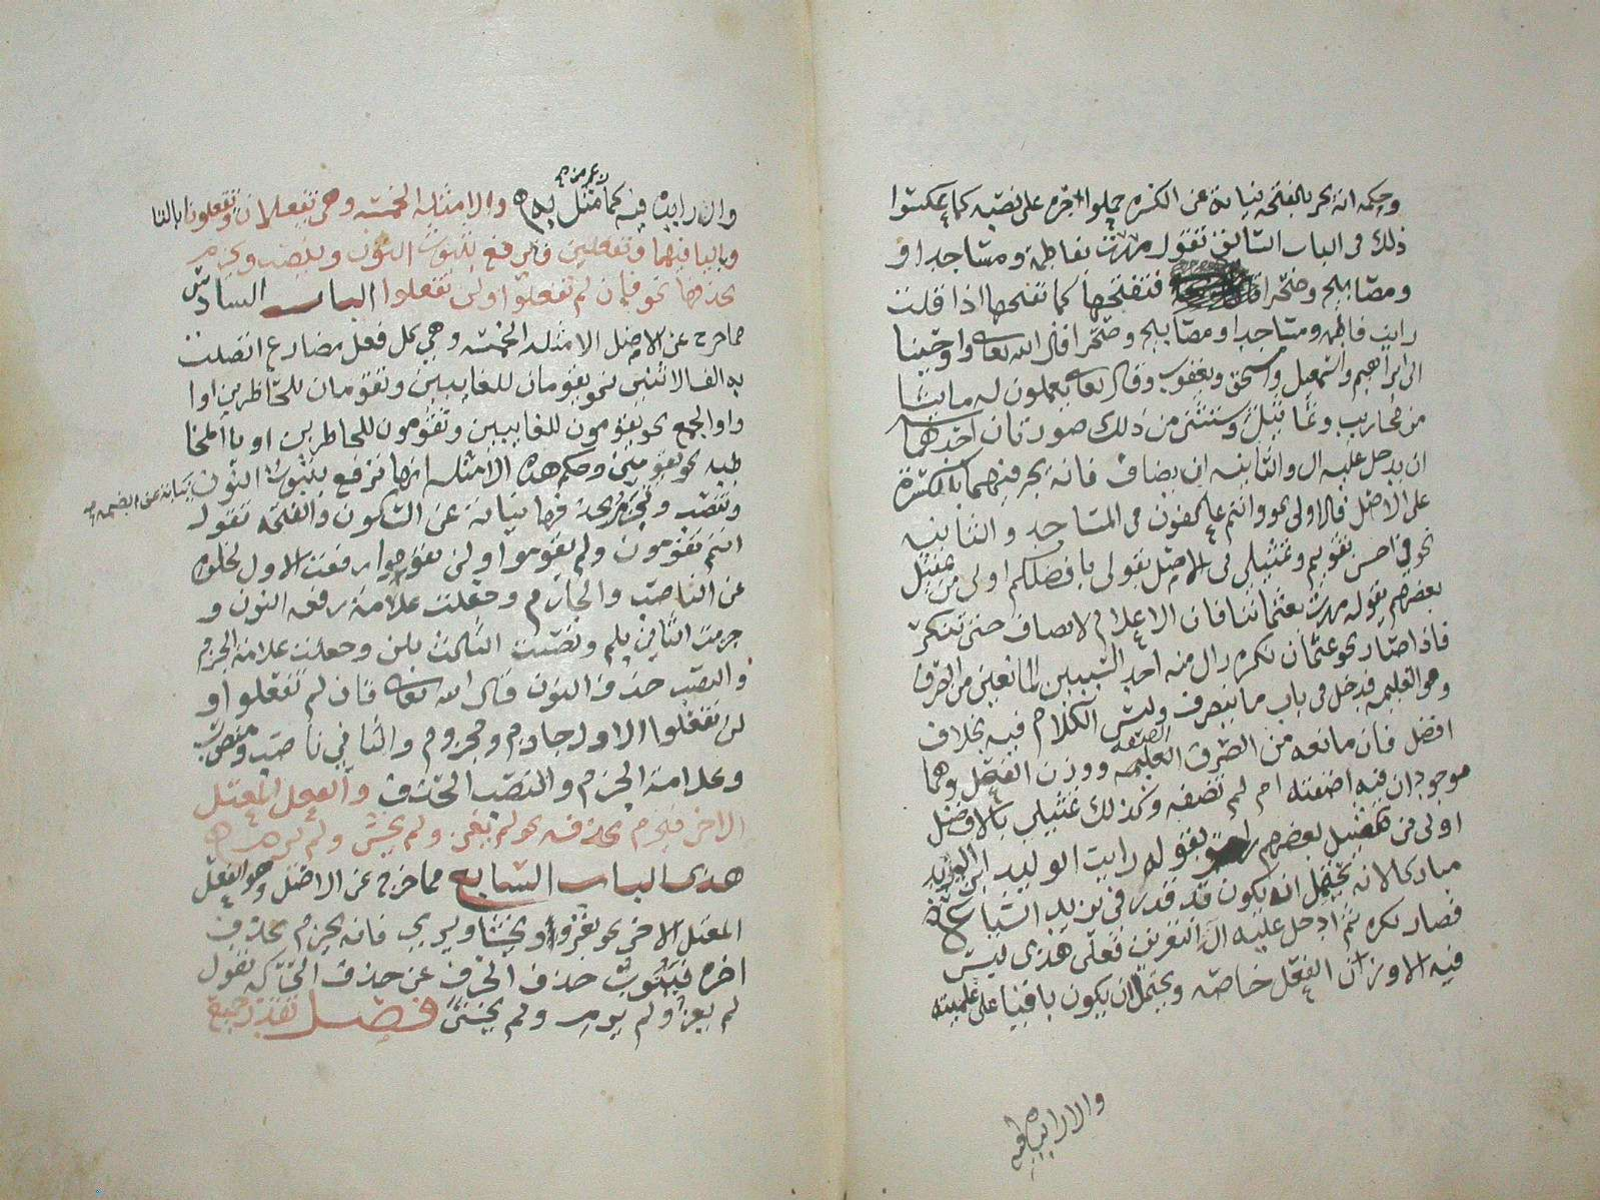 وحكمه انه يجر بالفتحه نيابة عن الكسره حملوا جره على نصبه كما عكسوا
ذلك فى الباب السابق تقول مررت بفاطمة ومساجد او
ومصابيح وصحرا فتفتحها كما تفتحها اذا قلت
رايت فاطمه ومساجد او مصابيح وصحرا قال الله تعالى واوحينا
الى ابراهيم واسمعيل واسحق ويعقوب وقال تعالى يعملون له ما يشا
من محاريب وتماثيل ويستثنى من ذلك صورتان احدهما
ان يدخل عليه ال والثانيه ان يضاف فانه يجر فيهما بالكسرة
على الاصل فالاولى نحو وانتم عاكفون فى المساجد والثانيه
نحو في احسن تقويم وتمثيلى فى الاصل بقولى بافضلكم اولى من تمثيل
بعضهم بقوله مررت بعثماننا فان الاعلام لا تضاف حتى تنكر
فاذا صار نحو عثمان نكره زال منه احد السببين المانعين من الصرف
وهو العلميه فدخل فى باب ما ينصرف وليس الكلام فيه بخلاف
افضل فان مانعه من الصرف الصفه ووزن الفعل وهما
موجودان فيه اضفته ام لم تضفه وكذلك تمثيلى بالافضل
اولى من تمثيل بعضهم بقوله رايت الوليد ابن اليزيد
مباركا لانه يحتمل انه يكون قد قدر فى يزيد الشياع
فصار نكره ثم ادخل عليه ال للتعريف فعلى هذى ليس
فيه الا وزن الفعل خاصه ويحتمل ان يكون باقيا على علميته
والا زايده فيه
وال زايده فيه كما مثل به والامثله الخمسه وهى تفعلان وتفعلون بالتا
وباليا فيهما وتفعلين فترفع بثبوت النون وتنصب وتجزم
بحذفها نحو فإن لم تفعلوا ولن تفعلوا الباب السادس
مما خرج عن الاصل الامثله الخمسه وهي كل فعل مضارع اتصلت
به الف الاثنين نحو يقومان للغايبين وتقومان للحاضرين او
واو الجمع نحو يقومون للغايبين وتقومون للحاضرين او يا المخا
طبه نحو تقومين وحكم هذه الامثله انها ترفع بثبوت النون نيابة عن الضمه
وتنصب وتجزم بحذفها نيابة عن السكون والفتحه تقول
انتم تقومون ولم تقوموا ولن تقوموا رفعت الاول لخلوه
عن الناصب والجازم وجعلت علامة رفعه النون و
جزمت الثاني بلم ونصبت الثالث بلن وجعلت علامة الجزم
والنصب حذف النون قال الله تعالى فان لم تفعلوا و
لن تفعلوا الاول جازم ومجزوم والثاني ناصب ومنصوب
وعلامة الجزم والنصب الحذف والفعل المعتل
الاخر فيجزم بحذفه نحو لم يغز ولم يخش ولم يرم
هذى الباب السابع مما خرج عن الاصل وهو الفعل
المعتل الاخر نحو يغزو ويخشا ويرمى فانه يجزم بحذف
اخره فينوب حذف الحرف عن حذف الحركه تقول
لم يغز ولم يرم ولم يخش فصل تقدر جميع